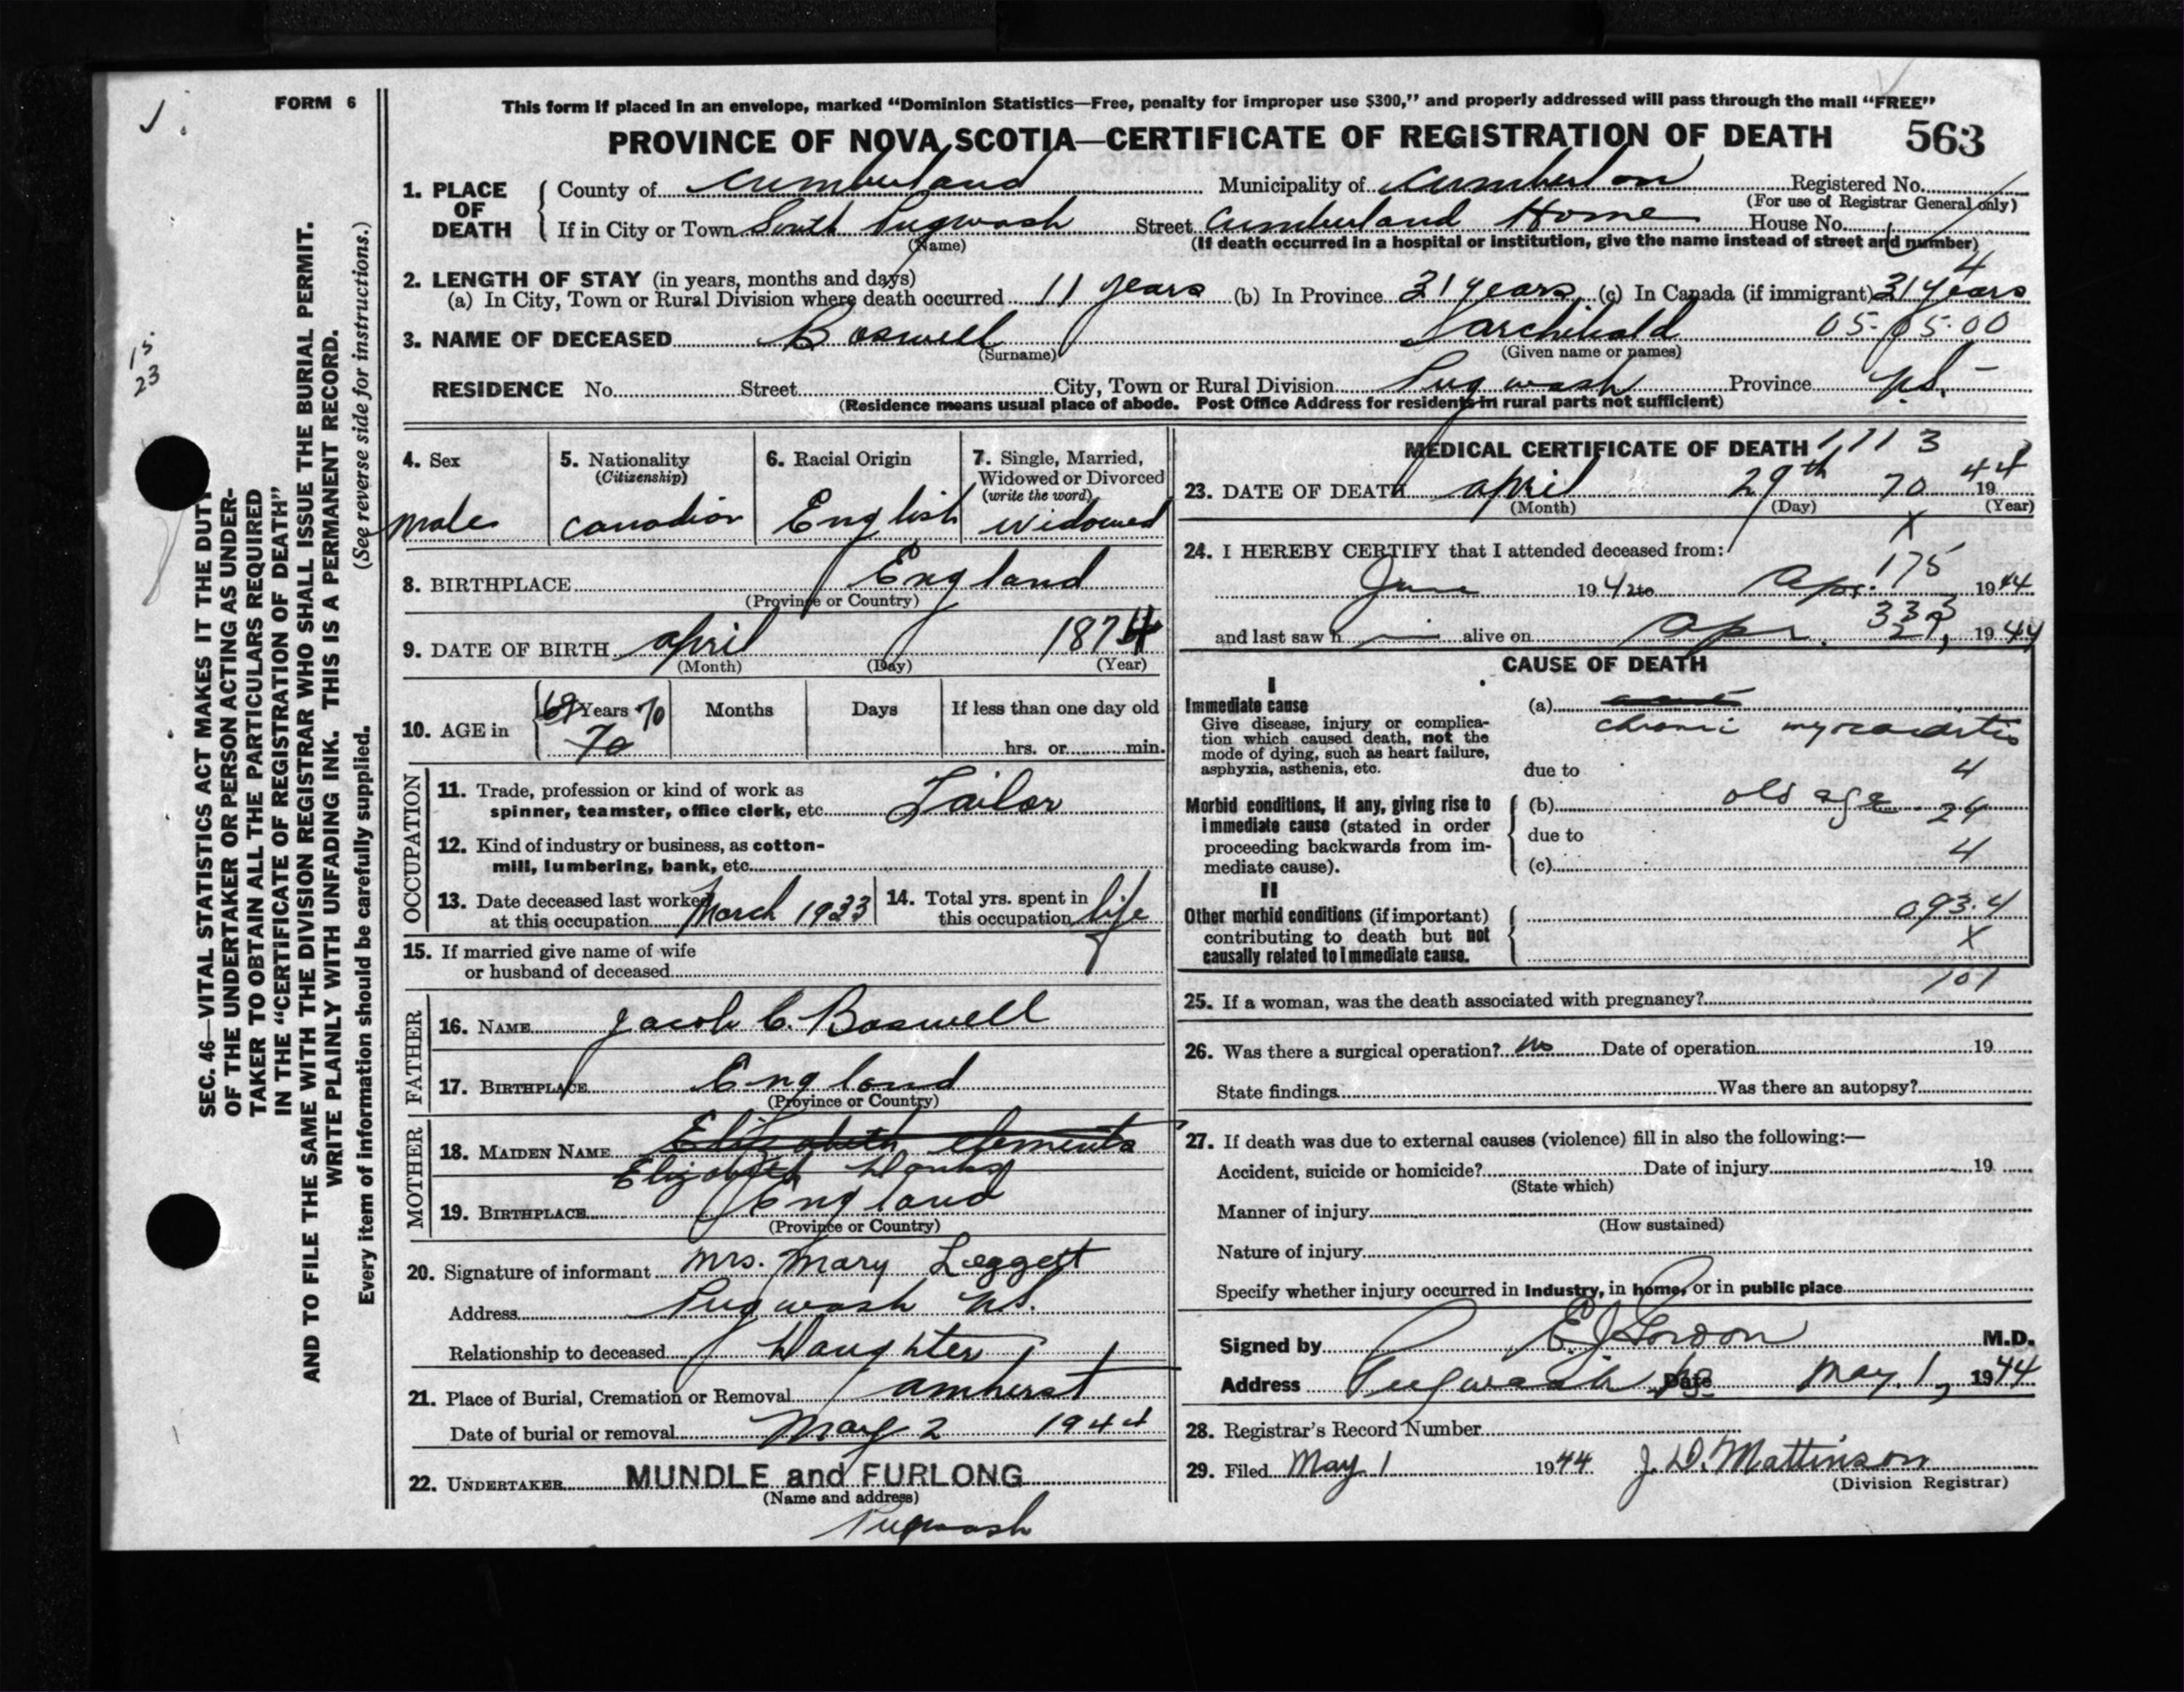 FORM 6
This form if placed in an envelope, marked “Dominion Statistics—Free, penalty for improper use $300,” and properly addressed will pass through the mail “FREE”
PROVINCE OF NOVA SCOTIA—CERTIFICATE OF REGISTRATION OF DEATH 563
1. PLACE OF DEATH
County of Cumberland Municipality of Registered No.
(For use of Registrar General only)
If in City or Town South Pugwash Street Cumberland Home House No.
(Name) (If death occurred in a hospital or institution, give the name instead of street and number)
2. LENGTH OF STAY (in years, months and days) 4
(a) In City, Town or Rural Division where death occurred 11 years (b) In Province 31 years (c) In Canada (if immigrant) 31 years
3. NAME OF DECEASED Boswell archibald 05-05-00
(Surname) (Given name or names)
RESIDENCE No. Street City, Town or Rural Division Pugwash Province N.S.
(Residence means usual place of abode. Post Office Address for residents in rural parts not sufficient)
4. Sex
male
5. Nationality
(Citizenship)
Canadian
6. Racial Origin
English
7. Single, Married,
Widowed or Divorced
(write the word)
Widowed
8. BIRTHPLACE England
(Province or Country)
9. DATE OF BIRTH april 1874
(Month) (Day) (Year)
10. AGE in Years 70 Months Days If less than one day old
70 hrs. or min.
OCCUPATION
11. Trade, profession or kind of work as
spinner, teamster, office clerk, etc. Tailor
12. Kind of industry or business, as cotton-
mill, lumbering, bank, etc.
13. Date deceased last worked
at this occupation March 1933
14. Total yrs. spent in
this occupation life
15. If married give name of wife
or husband of deceased
FATHER
16. NAME Jacob C. Boswell
17. BIRTHPLACE England
(Province or Country)
MOTHER
18. MAIDEN NAME Elizabeth elements
Elizabeth
19. BIRTHPLACE England
(Province or Country)
20. Signature of informant Mrs. Mary Leggett
Address Pugwash N.S.
Relationship to deceased Daughter
21. Place of Burial, Cremation or Removal amherst
Date of burial or removal May 2 1944
22. UNDERTAKER MUNDLE and FURLONG
(Name and address)
Pugwash
MEDICAL CERTIFICATE OF DEATH 1,113
23. DATE OF DEATH april 29th 70 1944
(Month) (Day) (Year)
X
24. I HEREBY CERTIFY that I attended deceased from:
175
June 1942 to Apr. 1944
333
and last saw h im alive on Apr. 29, 1944
CAUSE OF DEATH
I
Immediate cause
Give disease, injury or complica-
tion which caused death, not the
mode of dying, such as heart failure,
asphyxia, asthenia, etc.
(a)
chronic myocarditis
due to 4
Morbid conditions, if any, giving rise to
immediate cause (stated in order
proceeding backwards from im-
mediate cause).
(b) old age 24
due to
4
(c)
II
Other morbid conditions (if important)
contributing to death but not
causally related to immediate cause.
093.4
X
101
25. If a woman, was the death associated with pregnancy?
26. Was there a surgical operation? No Date of operation 19
State findings Was there an autopsy?
27. If death was due to external causes (violence) fill in also the following:—
Accident, suicide or homicide? Date of injury 19
(State which)
Manner of injury
(How sustained)
Nature of injury
Specify whether injury occurred in Industry, in home, or in public place
Signed by E. J. Gordon M.D.
Address Pugwash NS Date May. 1, 1944
28. Registrar’s Record Number
29. Filed May 1 1944 J. D. Mattinson
(Division Registrar)
15
23
SEC. 46—VITAL STATISTICS ACT MAKES IT THE DUTY
OF THE UNDERTAKER OR PERSON ACTING AS UNDER-
TAKER TO OBTAIN ALL THE PARTICULARS REQUIRED
IN THE “CERTIFICATE OF REGISTRATION OF DEATH”
AND TO FILE THE SAME WITH THE DIVISION REGISTRAR WHO SHALL ISSUE THE BURIAL PERMIT.
WRITE PLAINLY WITH UNFADING INK. THIS IS A PERMANENT RECORD.
Every item of information should be carefully supplied. (See reverse side for instructions.)